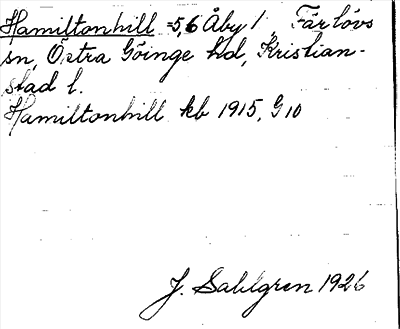 Hamiltonhill =5,6 Åby 1, Färlövs
sn, Östra Göinge hd, Kristian-
stad l.
Hamiltonhill kb 1915, G10
J. Sahlgren 1926